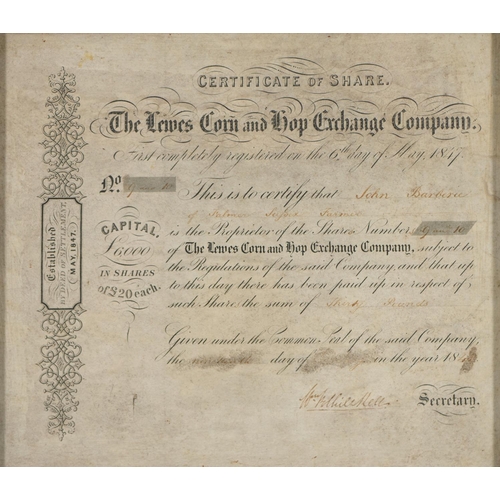 CERTIFICATE OF SHARE.
The Lewes Corn and Hop Exchange Company.
First completely registered on the 6th day of May, 1847.
No
This is to certify that John
of
CAPITAL,
£6000
IN SHARES
of £20 each.
is the Proprietor of the Shares Number
of The Lewes Corn and Hop Exchange Company, subject to
the Regulations of the said Company, and that up
to this day there has been paid up in respect of
such Share the sum of Pounds
Given under the Common Seal of the said Company,
the day of in the year 184
Secretary.
Established
BY DEED OF SETTLEMENT,
MAY, 1847.